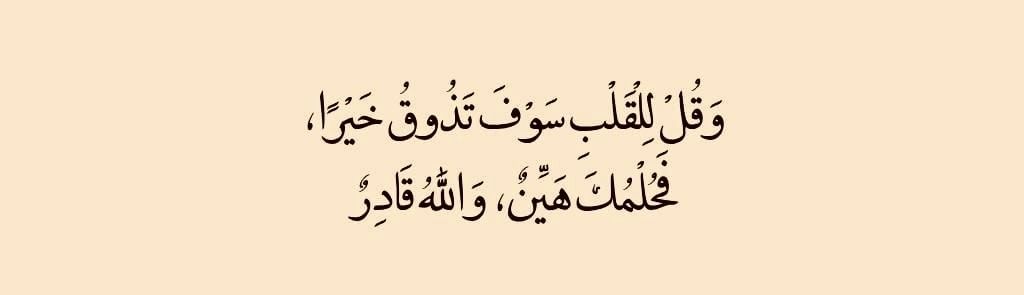 وَقُلْ لِلْقَلْبِ سَوْفَ تَذُوقُ خَيْرًا،
فَحُلْمُكَ هَيِّنٌ، وَاللهُ قَادِرٌ